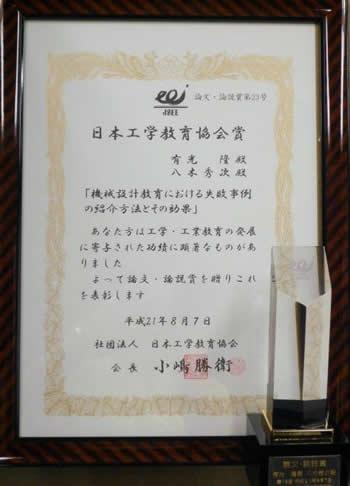 JSEE
論文・論説賞第23号
日本工学教育協会賞
有光 隆 殿
八木秀次 殿
「機械設計教育における失敗事例
の紹介方法とその効果」
あなた方は工学・工業教育の発展
に寄与された功績に顕著なものがあ
りました
よって論文・論説賞を贈りこれ
を表彰します
平成21年8月7日
社団法人 日本工学教育協会
会長 小嶋勝衛
論文・論説賞